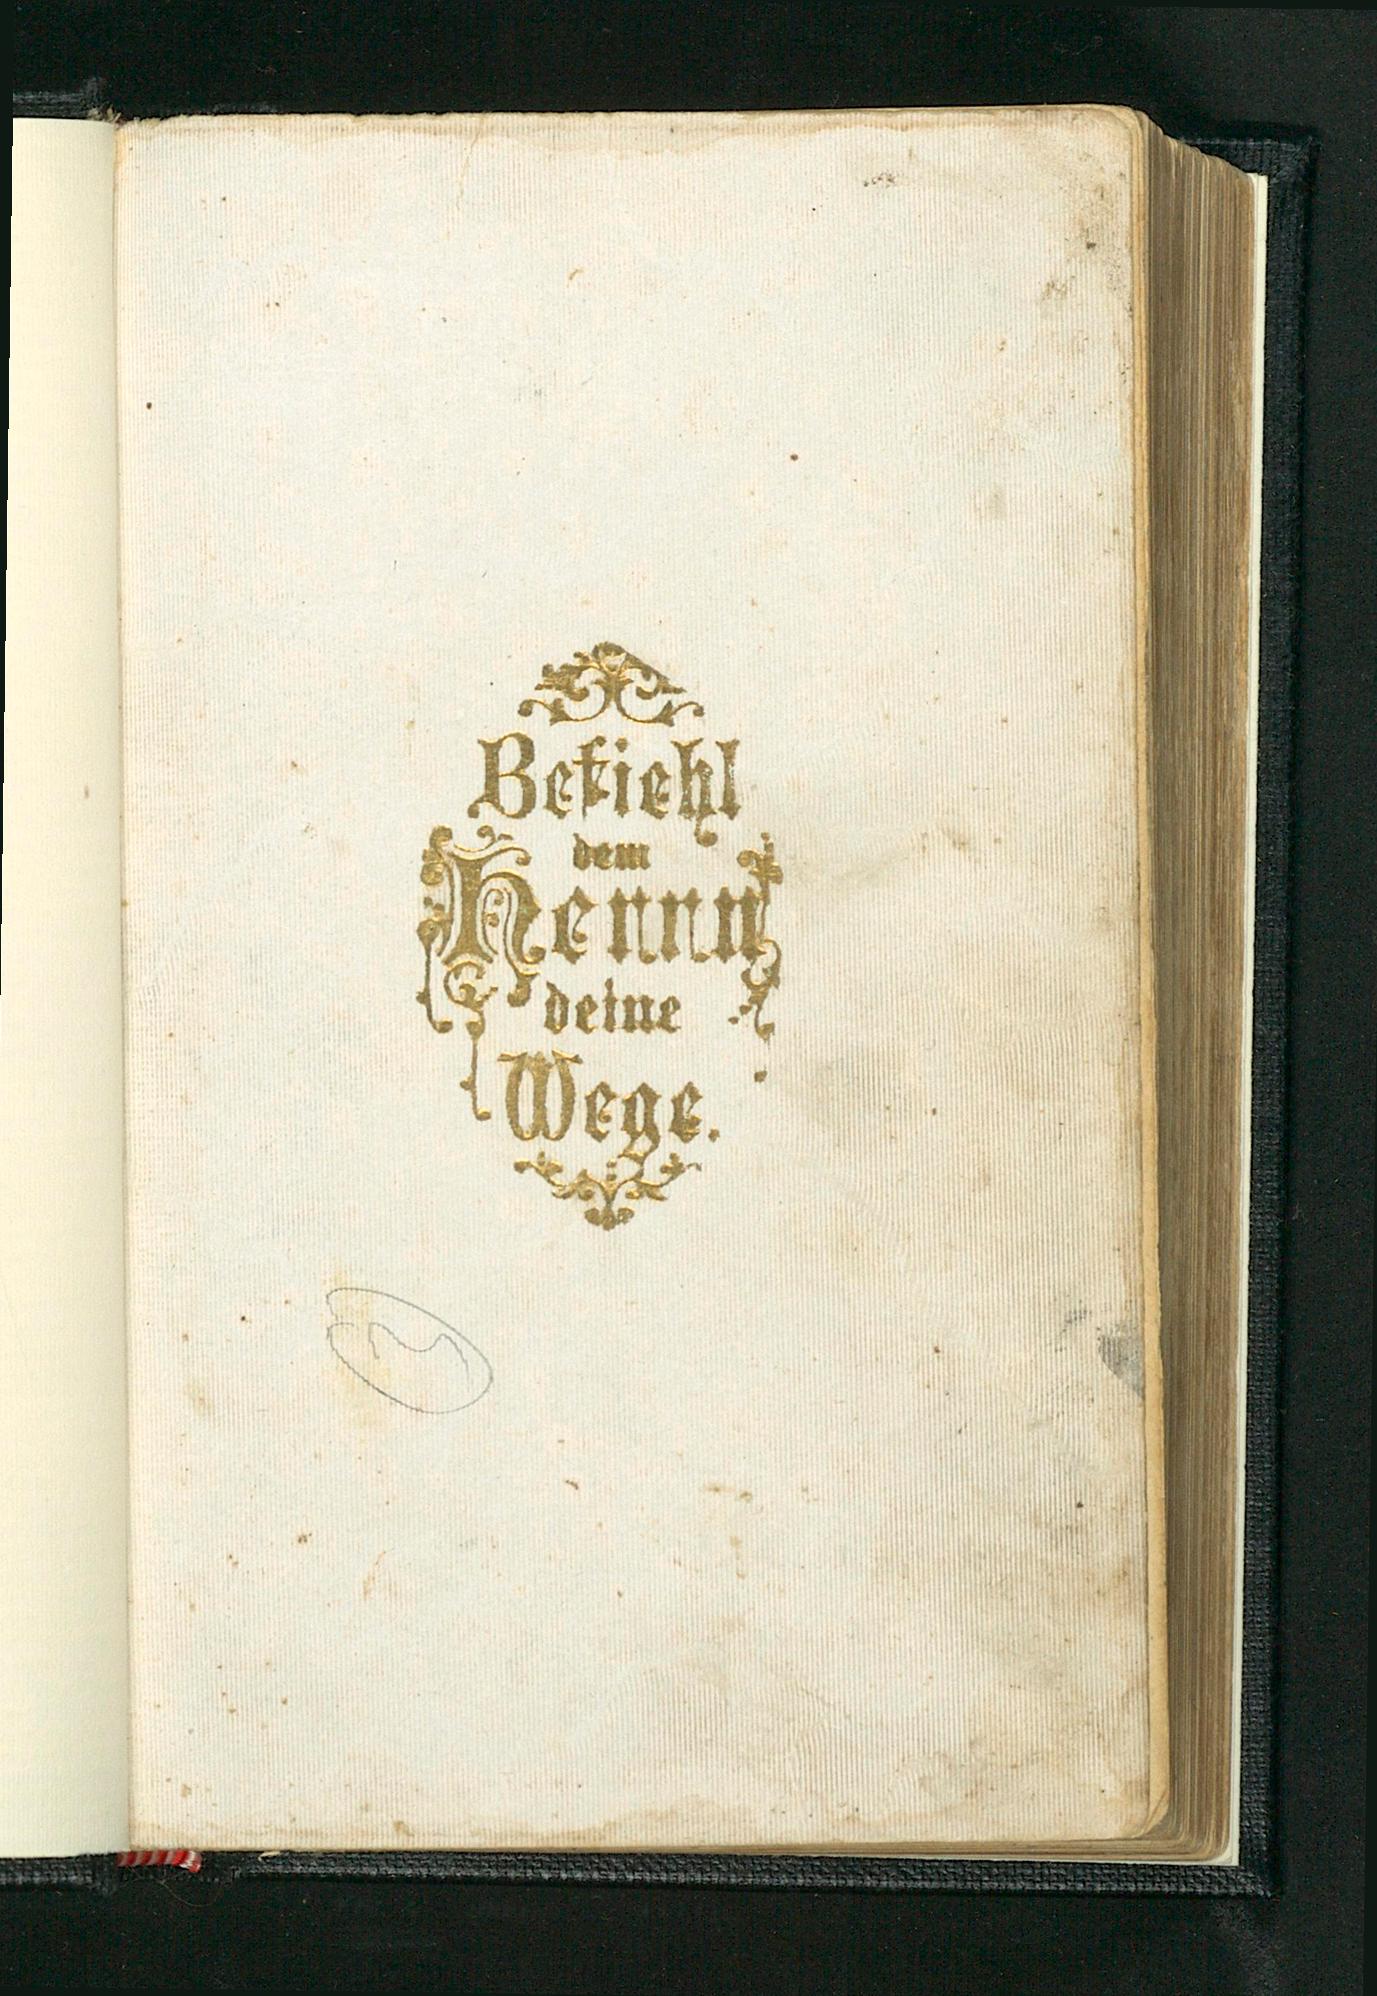 Befiehl
dem
Herrn
deine
Wege.